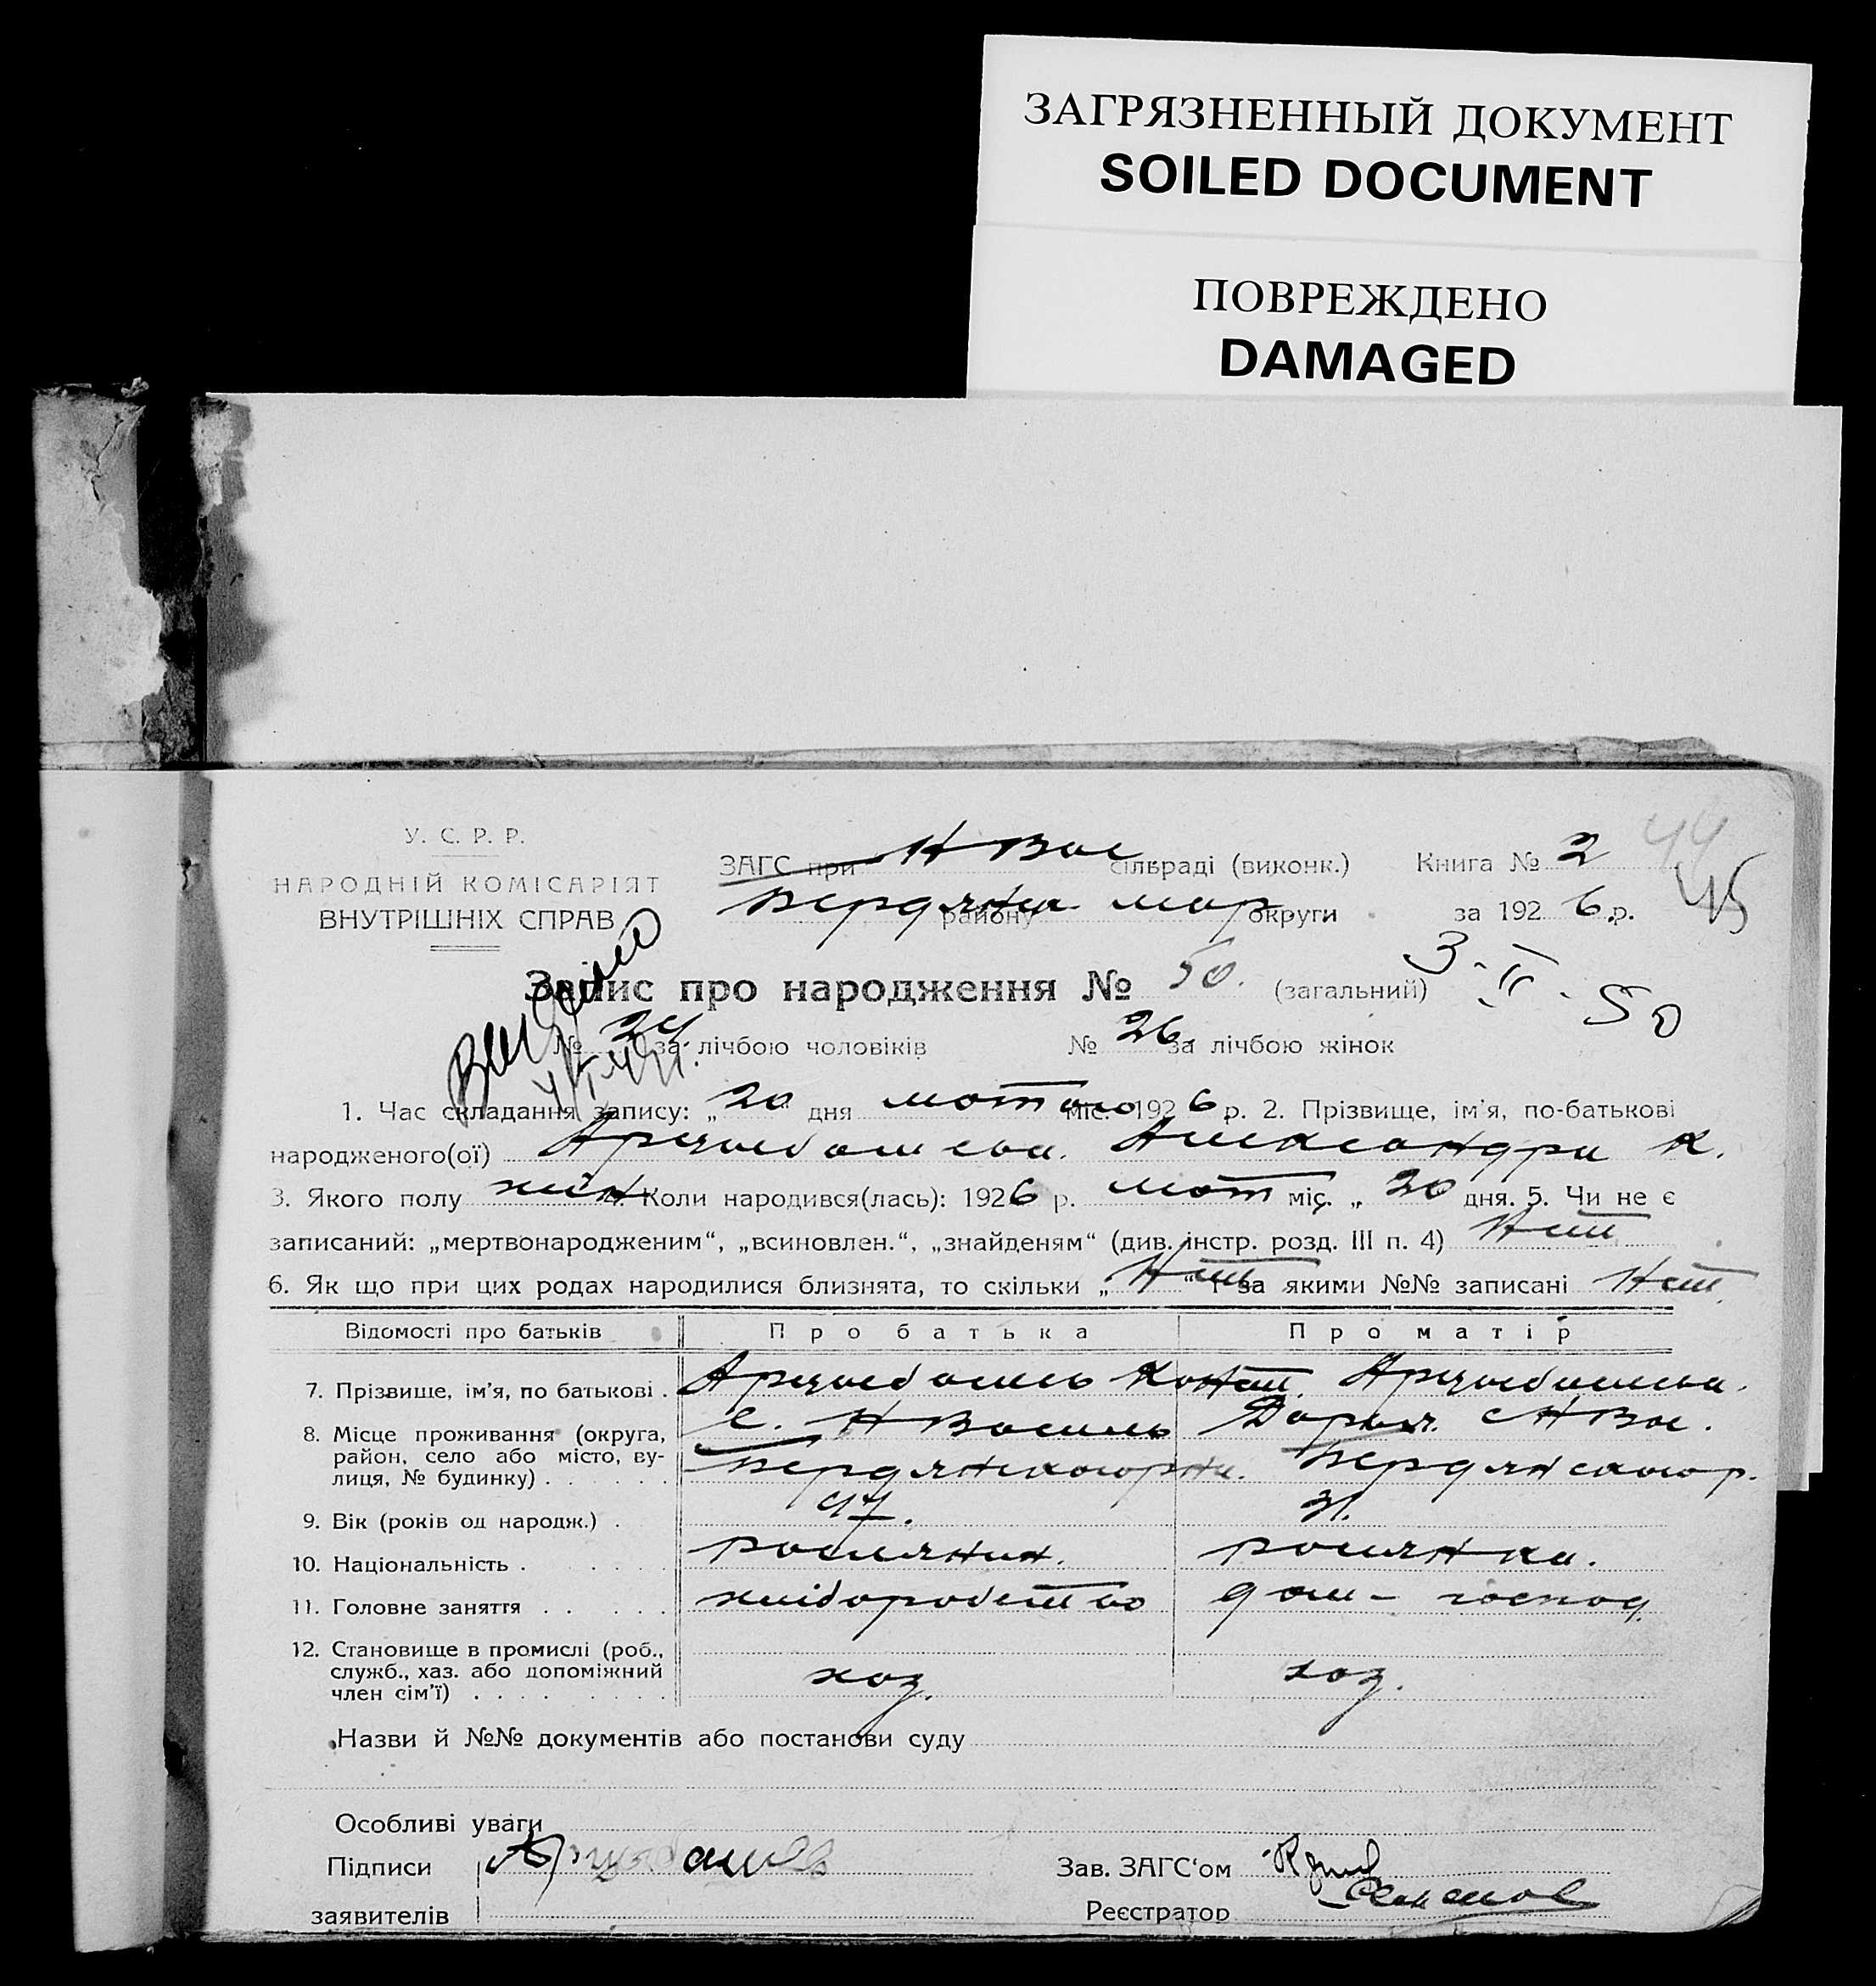 ЗАГРЯЗНЕННЫЙ ДОКУМЕНТ
SOILED DOCUMENT
ПОВРЕЖДЕНО
DAMAGED
У. С. Р. Р.
НАРОДНІЙ КОМІСАРІЯТ
ВНУТРІШНІХ СПРАВ
ЗАГС при Н Вас. сільраді (виконк.) Книга № 2 44
Бердянск. району мар. округи за 1926 р. 45
Запис про народження № 50. (загальний) 3-II-50
№ 24 за лічбою чоловіків № 26 за лічбою жінок
1. Час складання запису: „20 дня лютого міс. 1926 р. 2. Прізвище, ім'я, по-батькові
народженого(ої) Арцыбашева. Александра К.
3. Якого полу жін 4. Коли народився(лась): 1926 р. лют міс. „20 дня. 5. Чи не є
записаний: „мертвонародженим“, „всиновлен.“, „знайденям“ (див. інстр. розд. III п. 4) Нет
6. Як що при цих родах народилися близнята, то скільки „ Нет “ і за якими №№ записані Нет
Відомості про батьків Про батька Про матір
7. Прізвище, ім'я, по батькові . Арцыбашев Арцыбашева.
8. Місце проживання (округа, С. Н Василь Дарья. с Н Вас.
район, село або місто, ву-
лиця, № будинку) . Бердянского рна. Бердянского р.
9. Вік (років од народж.) . 31.
10. Національність . росіянин. росіянка.
11. Головне заняття . хліборобство дом- господ.
12. Становище в промислі (роб.,
служб., хаз. або допоміжний
член сім'ї) . хоз. хоз.
Назви й №№ документів або постанови суду
Особливі уваги
Підписи Арцыбашев Зав. ЗАГС'ом
заявителів Реєстратор